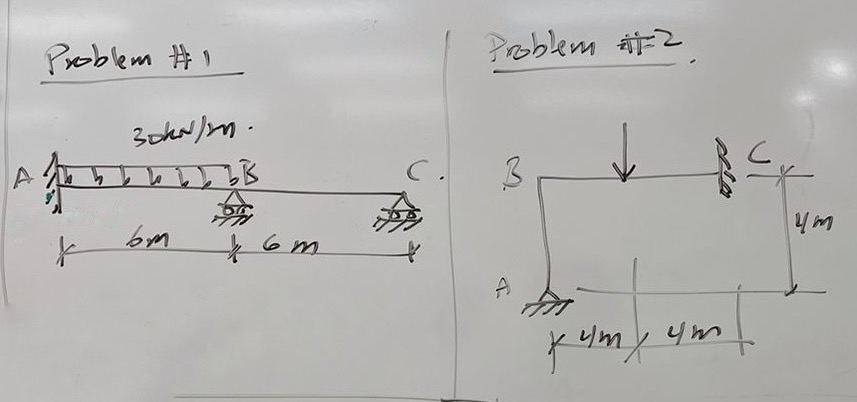 Problem #1
30kN/m.
A
B
C.
6m
6m
Problem #2.
B
C
4m
A
4m
4m